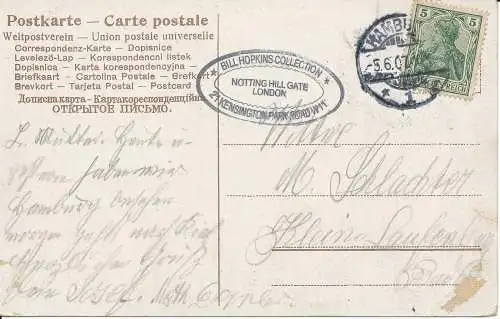 Postkarte — Carte postale
Weltpostverein — Union postale universelle
Correspondenz-Karte — Dopisnice
Levelező-Lap — Korespondencni listek
Dopisnica — Karta korespondencyjna
Briefkaart — Cartolina Postale — Brefkort
Brevkort — Tarjeta Postal — Postcard
Дописна карта — Картакореспонденційна
ОТКРЫТОЕ ПИСЬМО.
BILL HOPKINS COLLECTION
NOTTING HILL GATE
LONDON
KENSINGTON PARK ROAD W.11
HAMBURG
-5.6.0
* 1
5 5
REICH
L. Mutter. Heute
haben wir
Hamburg besehen
morgen geht nach Kiel
Herzliche Grüße
Dein
Witwe
M. Schlachter
Klein-Laufenburg
Baden